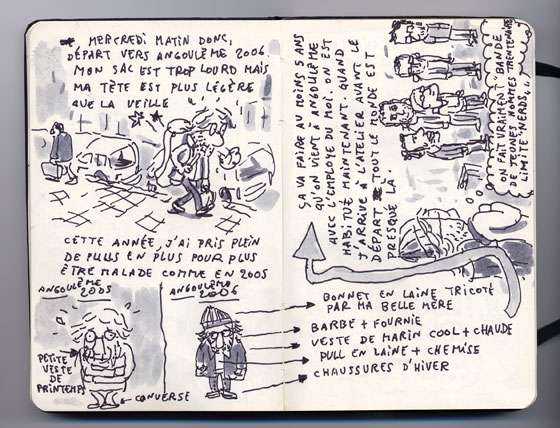 MERCREDI MATIN DONC,
DÉPART VERS ANGOULÊME 2006
MON SAC EST TROP LOURD MAIS
MA TÊTE EST PLUS LÉGÈRE
QUE LA VEILLE
CETTE ANNÉE, J'AI PRIS PLEIN
DE PULLS EN PLUS POUR PLUS
ÊTRE MALADE COMME EN 2005
ANGOULÊME
2005
PETITE
VESTE
DE
PRINTEMPS
CONVERSE
ANGOULÊME
2006
BONNET EN LAINE TRICOTÉ
PAR MA BELLE MÈRE
BARBE + FOURNIE
VESTE DE MARIN COOL + CHAUDE
PULL EN LAINE + CHEMISE
CHAUSSURES D'HIVER
ÇA VA FAIRE AU MOINS 5 ANS
QU'ON VIENT À ANGOULÊME
AVEC L'EMPLOYÉ DU MOI. ON EST
HABITUÉ MAINTENANT. QUAND
J'ARRIVE À L'ATELIER AVANT LE
DÉPART TOUT LE MONDE EST
PRESQUE LÀ.
ON FAIT VRAIMENT BANDE
DE JEUNES HOMMES TRENTENAIRE
LIMITE "NERDS"...